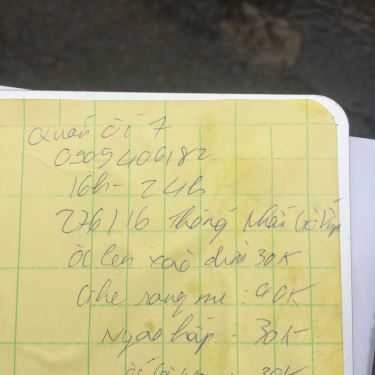 Quán ốc 7
0909406182
16h - 24h
276/16 Thống Nhất Gò Vấp
ốc len xào dừa 30K
Ghẹ rang me : 40K
Ngao hấp : 30K
30K